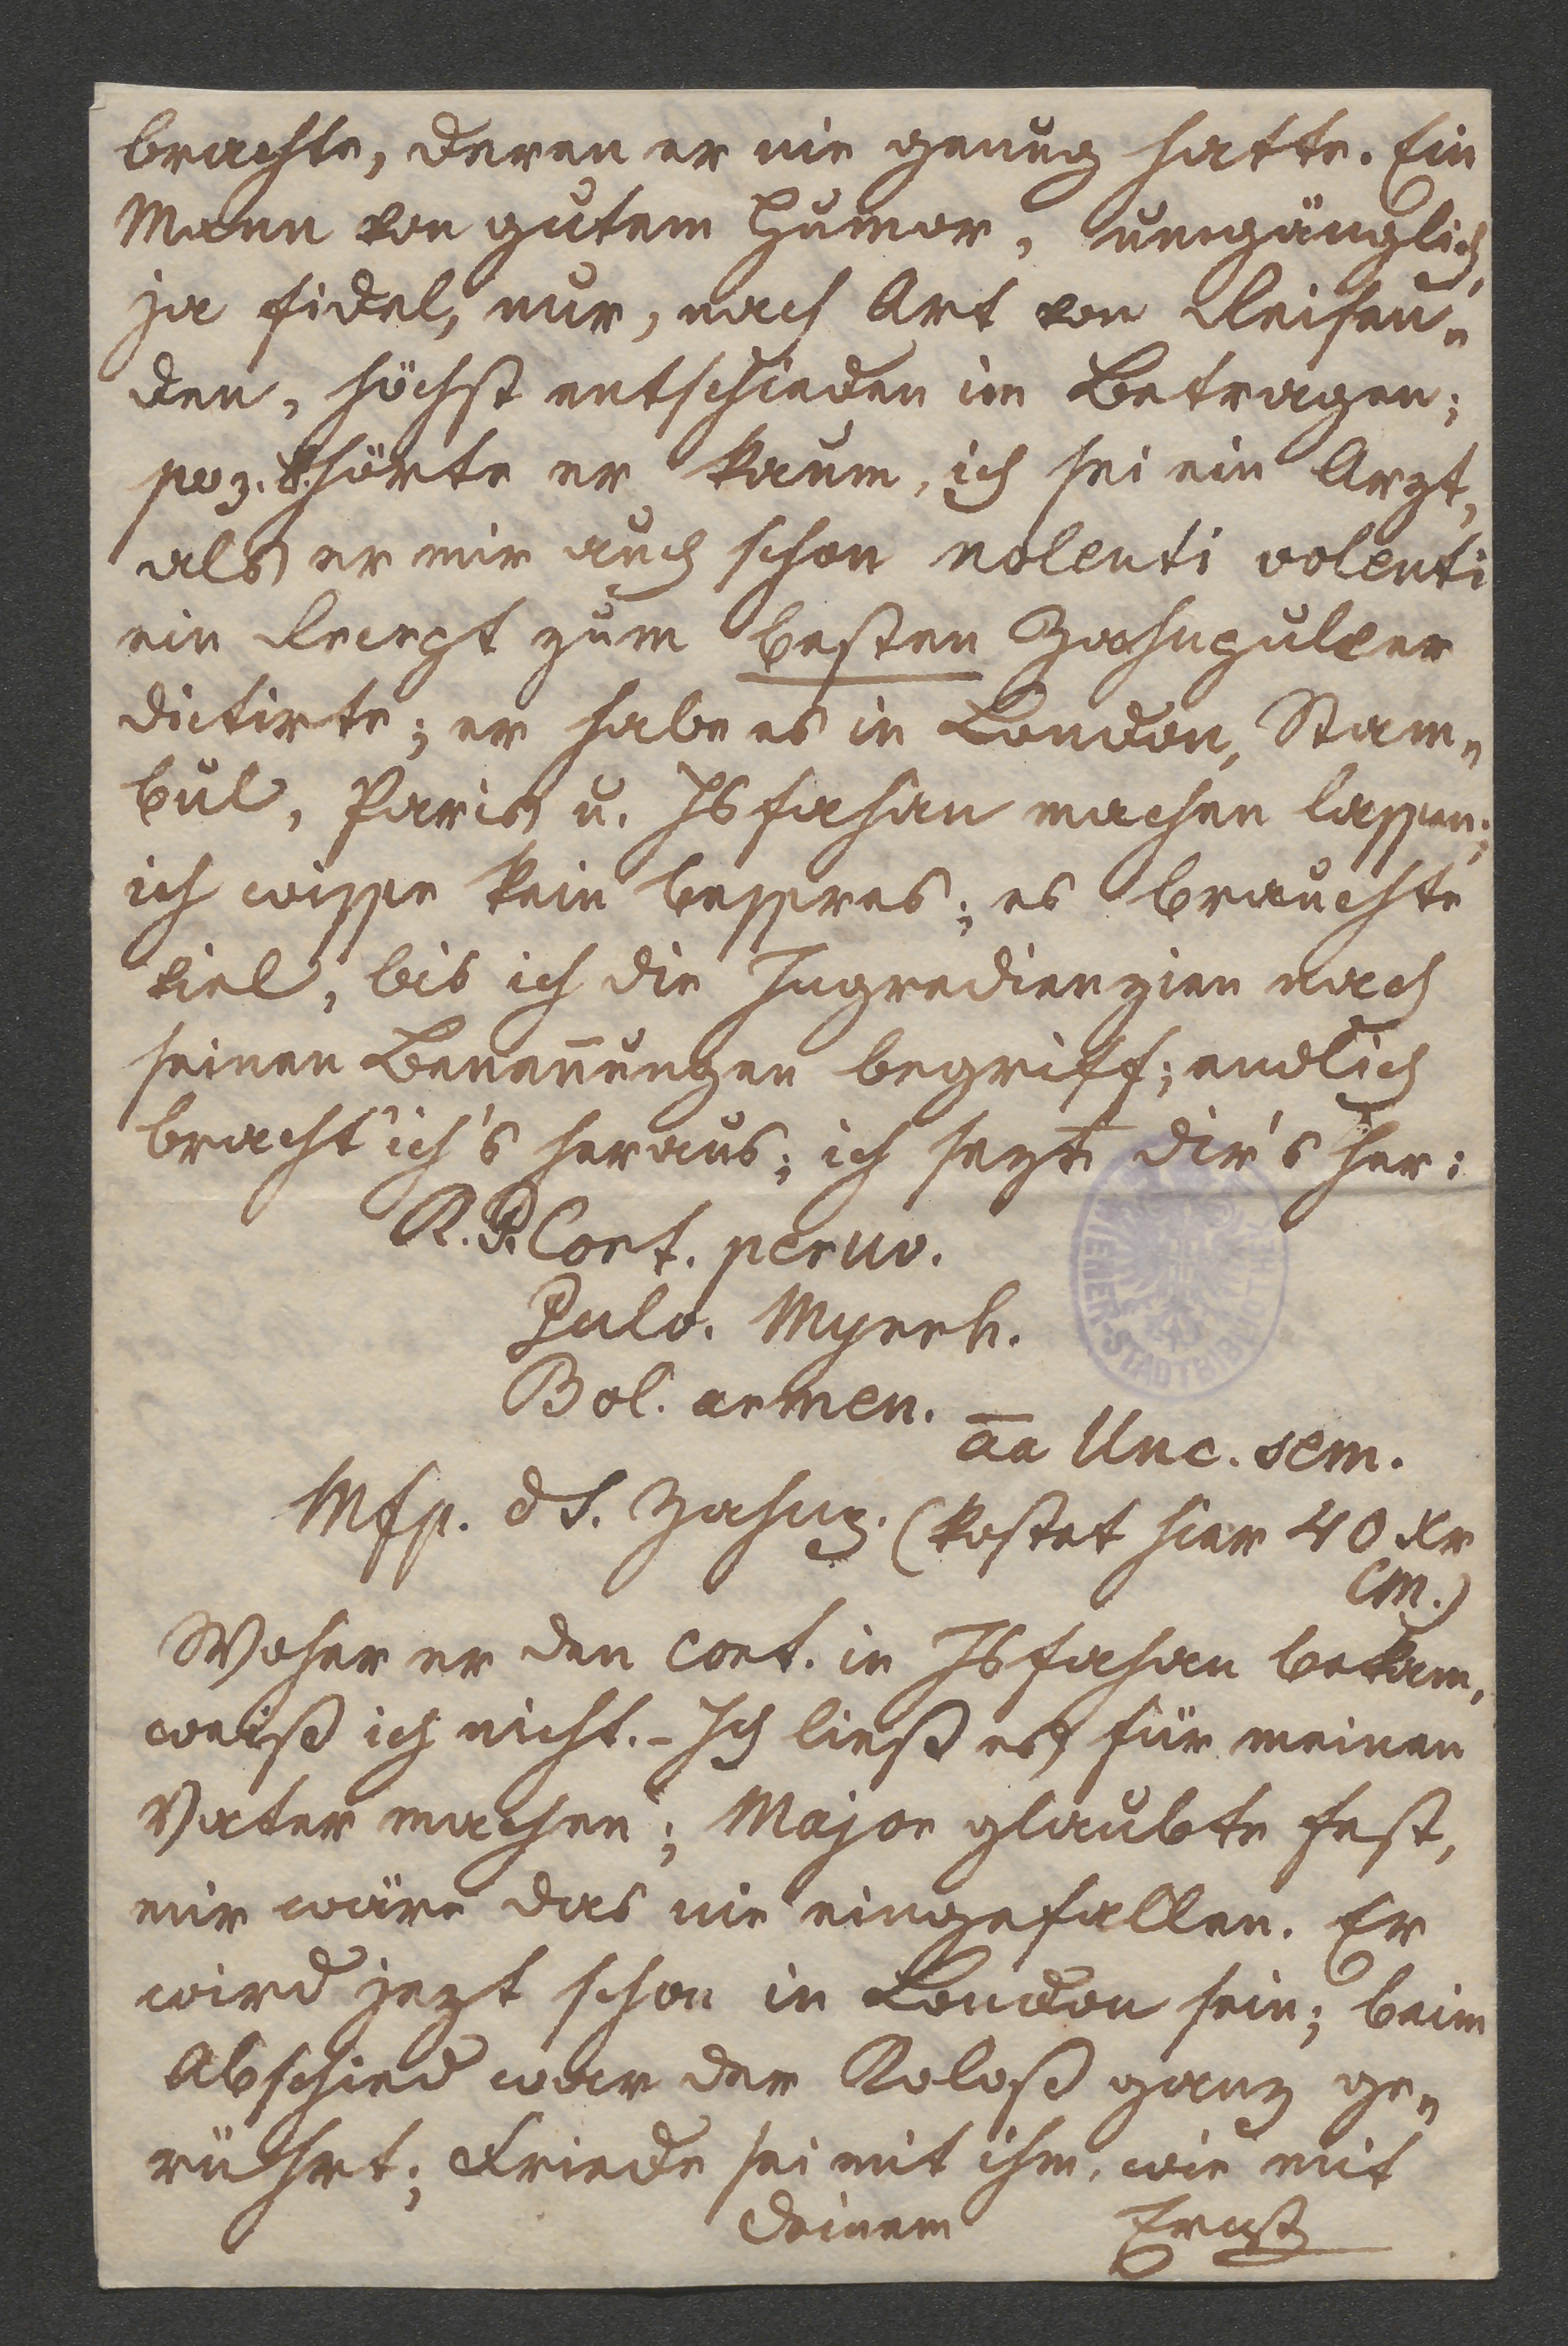 brachte, deren er nie genug hatte. Ein
Mann von gutem Humor, umgänglich,
ja fidel, nur, nach Art von Reisen-
den, höchst entschieden im Betragen;
so z. B. hörte er kaum, ich sei ein Arzt,
als er mir auch schon nolenti volenti
ein Recept zum besten Zahnpulver
dictirte; er habe es in London, Stam-
bul, Paris u. Isfahan machen lassen;
ich wisse kein besseres; es brauchte
viel, bis ich die Ingredienzien nach
seinen Benen̅ungen begriff; endlich
bracht' ich's heraus; ich setzte dir's her:
R. P. Cort. peruv.
Pulv. Myrrh.
Bol. armen.
a̅a̅ Unc. sem.
Mfp. d S. Zahnp. (kostet hier 40 xr
CM.)
Woher er den Cort. in Isfahan bekam,
weiß ich nicht. – Ich ließ es für meinen
Vater machen; Major glaubte fest,
mir wäre das nie eingefallen. Er
wird jezt schon in London sein; beim
Abschied war der Koloß ganz ge-
rührt; Friede sei mit ihm, wie mit
deinem Ernst
WIENER STADTBIBLIOTHEK